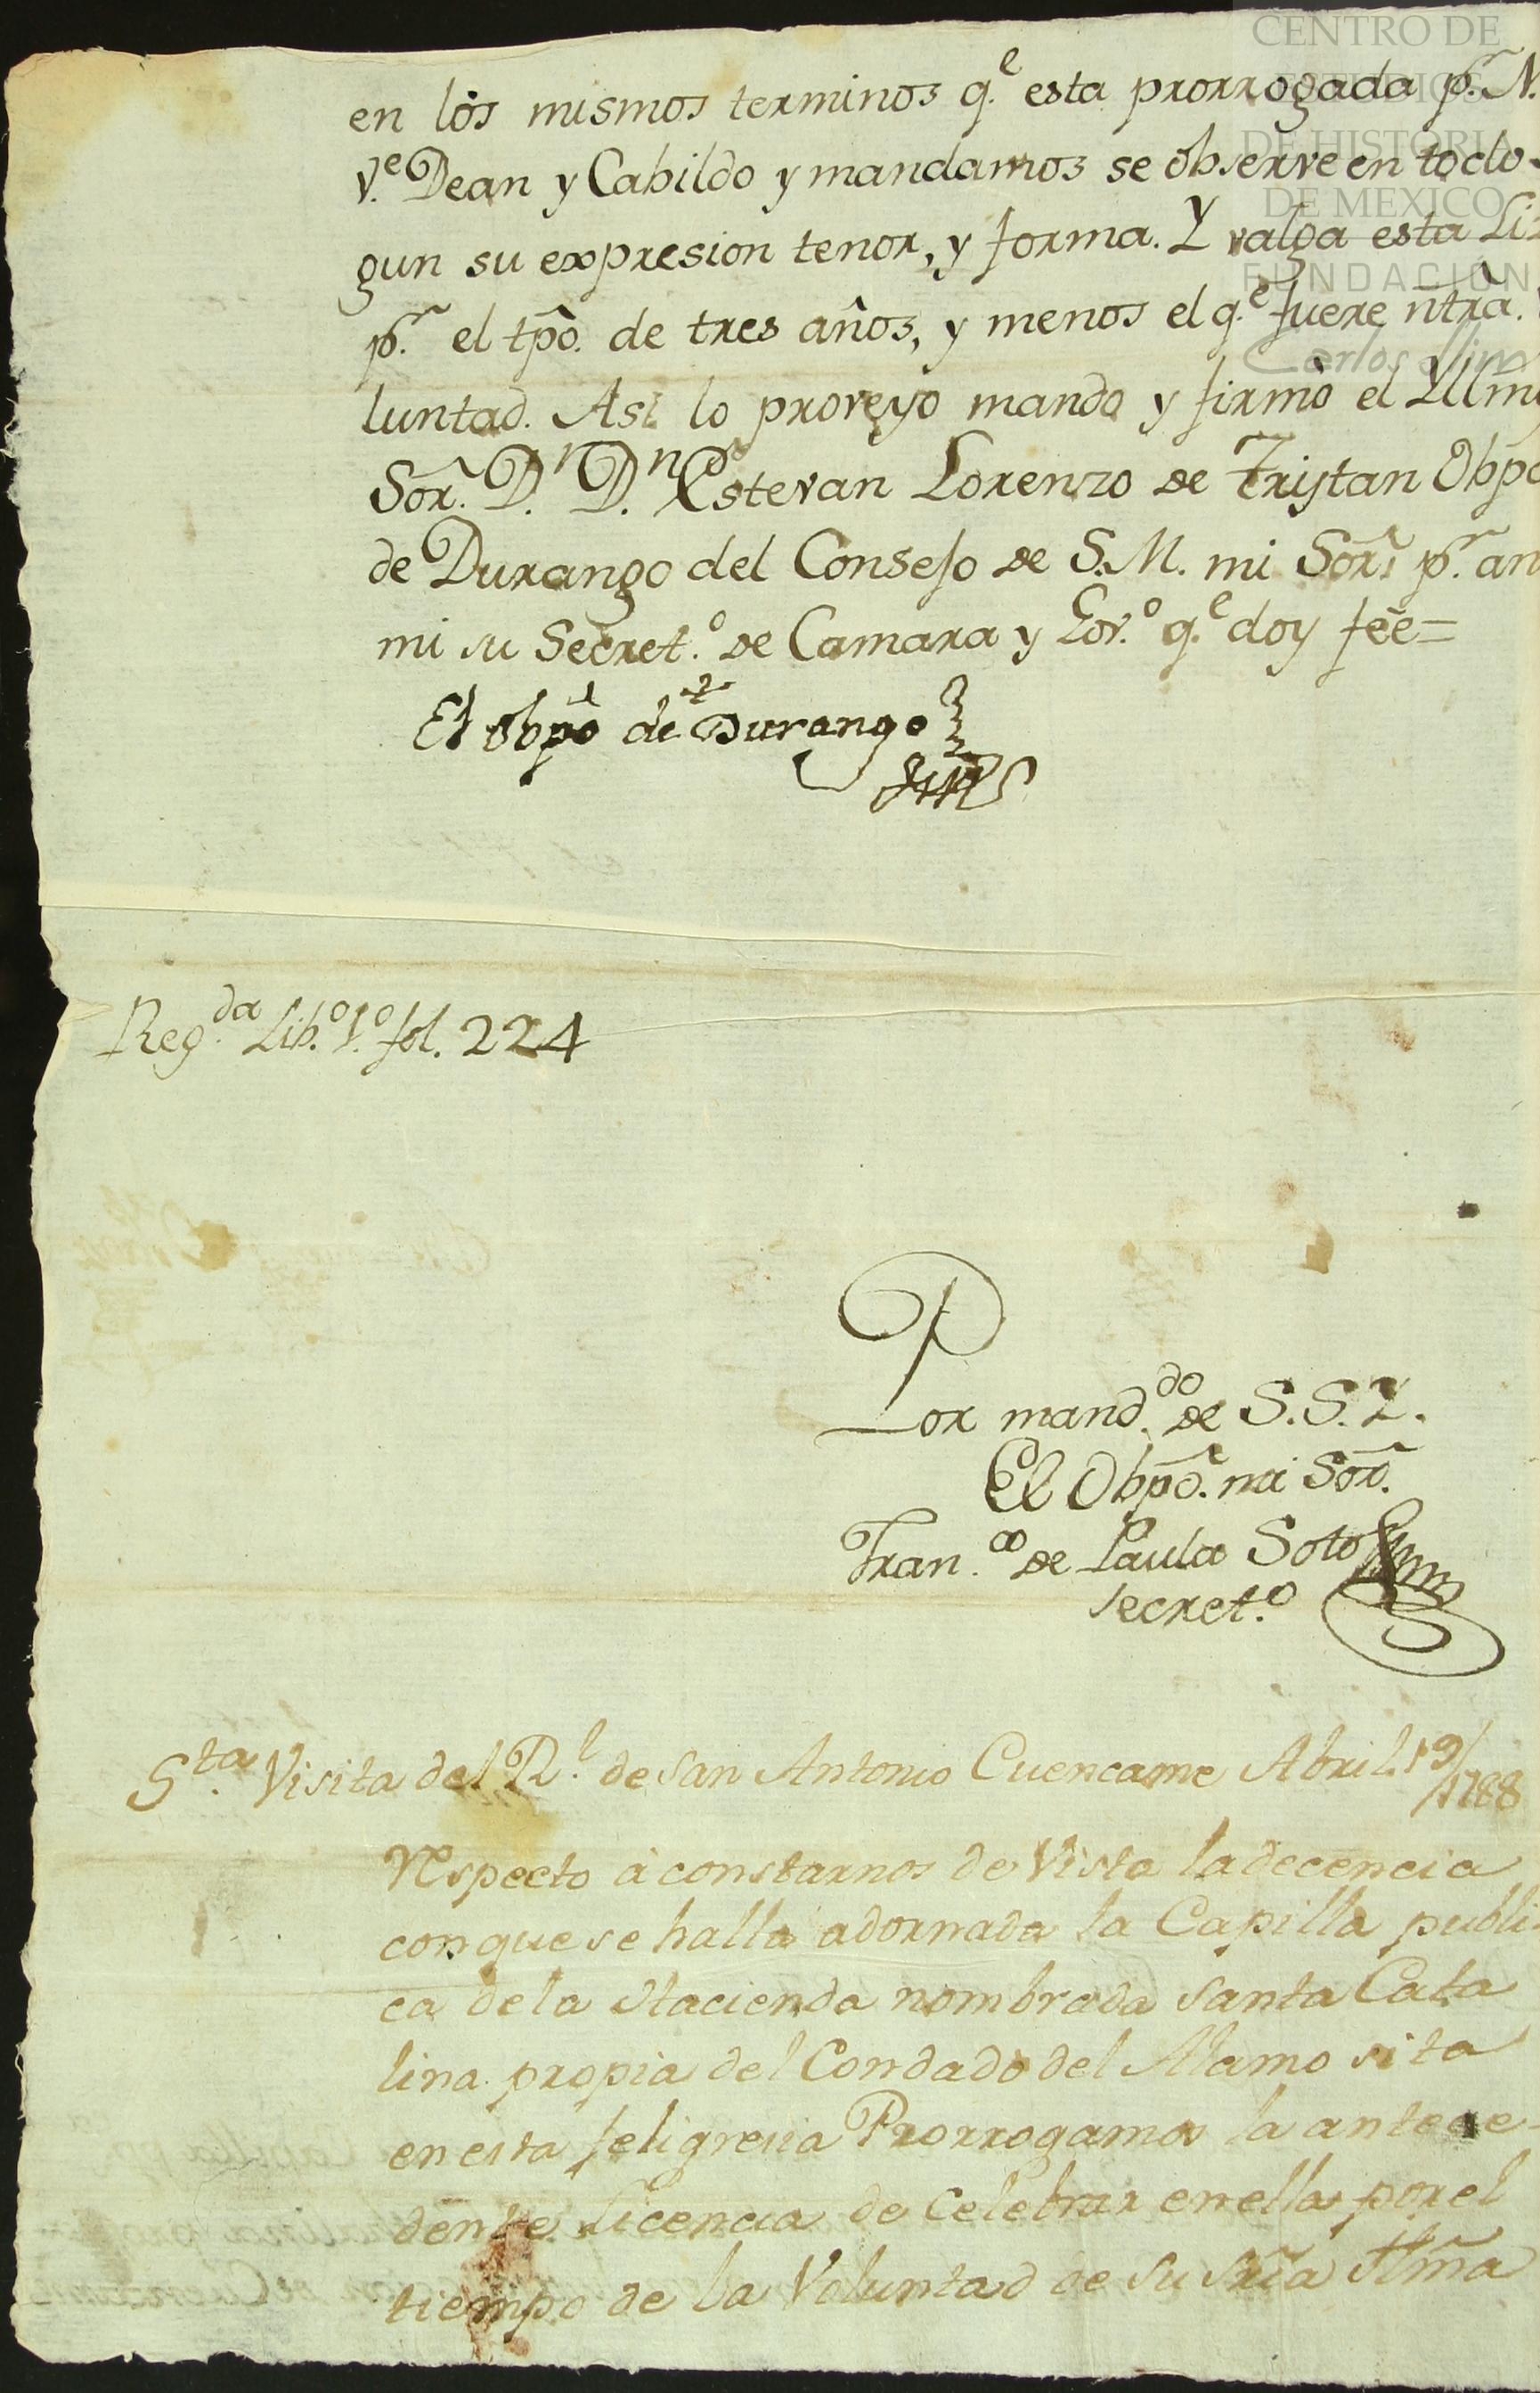 CENTRO DE
ESTUDIOS
DE HISTORIA
DE MEXICO
FUNDACIÓN
Carlos Slim
en los mismos terminos q.e esta prorrogada p.r N.
V.e Dean y Cabildo y mandamos se observe en todo
gun su expresion tenor, y forma. Y valga esta Li
p.r el tpô. de tres años, y menos el q.e fuere ntrâ.
luntad. Asi lo proveyo mando y firmò el Yllmo
Sor. D.n D.n Estevan Lorenzo de Tristan Obpo
de Durango del Consejo de S.M. mi Sor. p.r an
mi su Secret.o de Camara y Gov.o q.e doy feè=
El Obpo de Durango
Reg.da Lib.o 1.o fol. 224
Por mand.do de S.S.Y.
El Obpô. mi Sor.
Fran.co de Paula Soto
secret.o
S.ta Visita del R.l de San Antonio Cuencame Abril 19/
/1788
Respecto à constarnos de Vista la decencia
con que se halla adornada la Capilla publi
ca de la Hacienda nombrada Santa Cata
lina propia del Condado del Alamo sita
en esta feligresia Prorrogamos la antece-
dente Licencia de Celebrar en ella por el
tiempo de la Voluntad de su Sria Ilma